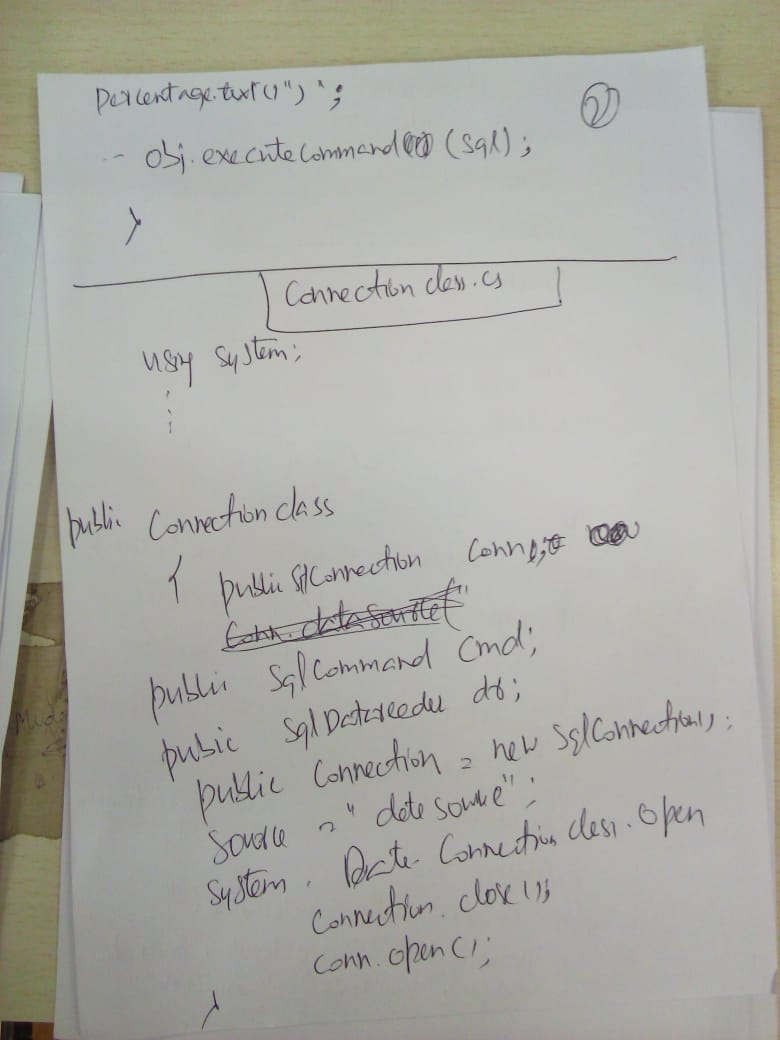 percentage.text(") ';
2
-- obj.executeCommand (sql);
}
Connection class.cs
using system;
public Connection class
{ public SqlConnection Conn;
Conn.datasource("
public SqlCommand cmd;
pubic SqlDatareader dr;
public Connection = new SqlConnection();
Source = "date source";
System. Date. Connection class. open
Connection. close();
conn.open();
}